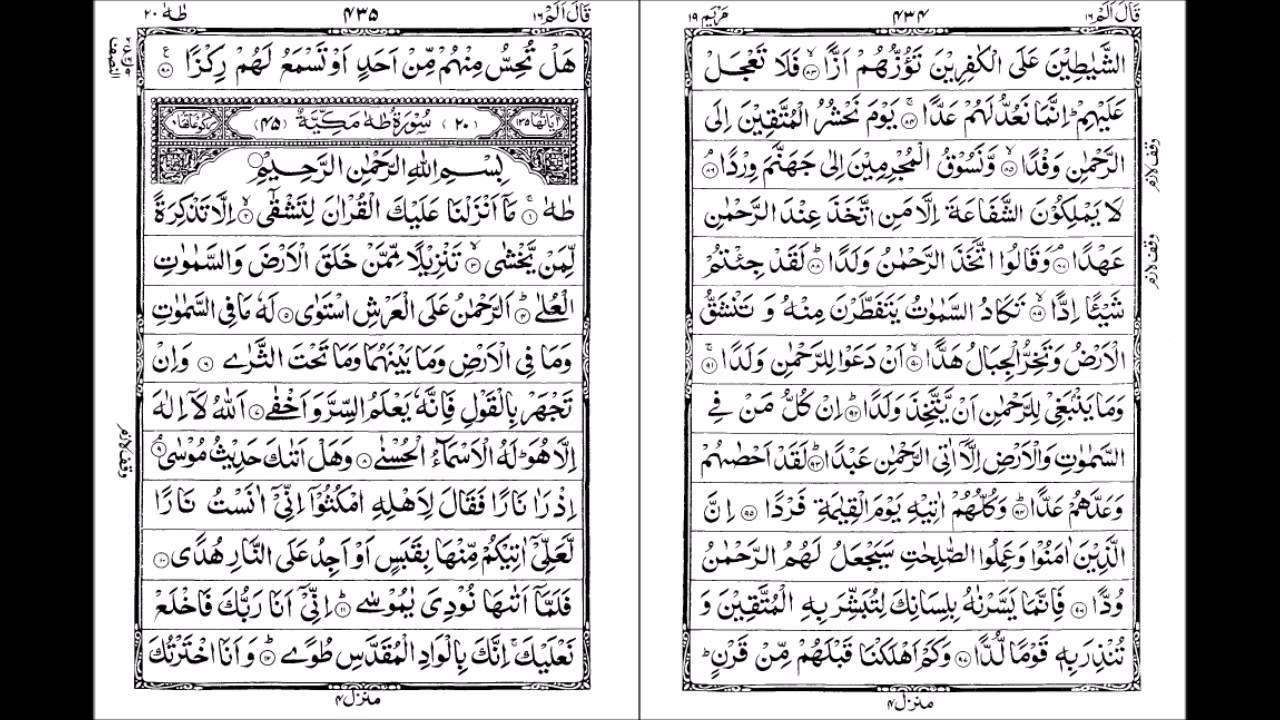 قَالَ اَلَمْ ١٦
٤٣٤
مَرْيَم ١٩
الشَّيٰطِيْنَ عَلَى الْكٰفِرِيْنَ تَؤُزُّهُمْ اَزًّا ۙ‏﴿٨٣﴾ فَلَا تَعْجَلْ
عَلَيْهِمْ ؕ اِنَّمَا نَعُدُّ لَهُمْ عَدًّا ۚ‏﴿٨٤﴾ يَوْمَ نَحْشُرُ الْمُتَّقِيْنَ اِلَى
الرَّحْمٰنِ وَفْدًا ۙ‏﴿٨٥﴾ وَّنَسُوْقُ الْمُجْرِمِيْنَ اِلٰى جَهَنَّمَ وِرْدًا ۘ‏﴿٨٦﴾
وقف لازم
لَا يَمْلِكُوْنَ الشَّفَاعَةَ اِلَّا مَنِ اتَّخَذَ عِنْدَ الرَّحْمٰنِ
عَهْدًا ۘ‏﴿٨٧﴾ وَقَالُوا اتَّخَذَ الرَّحْمٰنُ وَلَدًا ؕ‏﴿٨٨﴾ لَقَدْ جِئْتُمْ
وقف لازم
شَيْـًٔا اِدًّا ۙ‏﴿٨٩﴾ تَكَادُ السَّمٰوٰتُ يَتَفَطَّرْنَ مِنْهُ وَ تَنْشَقُّ
الْاَرْضُ وَتَخِرُّ الْجِبَالُ هَدًّا ۙ‏﴿٩٠﴾ اَنْ دَعَوْا لِلرَّحْمٰنِ وَلَدًا ۚ‏﴿٩١﴾
وَمَا يَنْۢبَغِىْ لِلرَّحْمٰنِ اَنْ يَّتَّخِذَ وَلَدًا ؕ‏﴿٩٢﴾ اِنْ كُلُّ مَنْ فِى
السَّمٰوٰتِ وَالْاَرْضِ اِلَّاۤ اٰتِى الرَّحْمٰنِ عَبْدًا ؕ‏﴿٩٣﴾ لَقَدْ اَحْصٰٮهُمْ
وَعَدَّهُمْ عَدًّا ؕ‏﴿٩٤﴾ وَكُلُّهُمْ اٰتِيْهِ يَوْمَ الْقِيٰمَةِ فَرْدًا ‏﴿٩٥﴾ اِنَّ
الَّذِيْنَ اٰمَنُوْا وَعَمِلُوا الصّٰلِحٰتِ سَيَجْعَلُ لَهُمُ الرَّحْمٰنُ
وُدًّا ‏﴿٩٦﴾ فَاِنَّمَا يَسَّرْنٰهُ بِلِسَانِكَ لِتُبَشِّرَ بِهِ الْمُتَّقِيْنَ وَ
تُنْذِرَ بِهٖ قَوْمًا لُّدًّا ‏﴿٩٧﴾ وَكَمْ اَهْلَكْنَا قَبْلَهُمْ مِّنْ قَرْنٍ ؕ
منزل ٤
قَالَ اَلَمْ ١٦
٤٣٥
طٰهٰ ٢٠
هَلْ تُحِسُّ مِنْهُمْ مِّنْ اَحَدٍ اَوْ تَسْمَعُ لَهُمْ رِكْزًا ‏﴿٩٨﴾ ع
اٰيَاتُهَا ١٣٥ (٢٠) سُوْرَةُ طٰهٰ مَكِّيَّةٌ (٤٥) رُكُوْعَاتُهَا ٨
بِسْمِ اللهِ الرَّحْمٰنِ الرَّحِيْمِ
طٰهٰ ۚ‏﴿١﴾ مَاۤ اَنْزَلْنَا عَلَيْكَ الْقُرْاٰنَ لِتَشْقٰٓى ۙ‏﴿٢﴾ اِلَّا تَذْكِرَةً
لِّمَنْ يَّخْشٰى ۙ‏﴿٣﴾ تَنْزِيْلًا مِّمَّنْ خَلَقَ الْاَرْضَ وَالسَّمٰوٰتِ
الْعُلٰى ؕ‏﴿٤﴾ اَلرَّحْمٰنُ عَلَى الْعَرْشِ اسْتَوٰى ‏﴿٥﴾ لَهٗ مَا فِى السَّمٰوٰتِ
وَمَا فِى الْاَرْضِ وَمَا بَيْنَهُمَا وَمَا تَحْتَ الثَّرٰى ‏﴿٦﴾ وَاِنْ
تَجْهَرْ بِالْقَوْلِ فَاِنَّهٗ يَعْلَمُ السِّرَّ وَاَخْفٰى ‏﴿٧﴾ اَللّٰهُ لَاۤ اِلٰهَ
اِلَّا هُوَ ؕ لَهُ الْاَسْمَآءُ الْحُسْنٰى ‏﴿٨﴾ وَهَلْ اَتٰٮكَ حَدِيْثُ مُوْسٰى ۘ‏﴿٩﴾
وقف لازم
اِذْ رَاٰ نَارًا فَقَالَ لِاَهْلِهِ امْكُثُوْۤا اِنِّىْۤ اٰنَسْتُ نَارًا
لَّعَلِّىْۤ اٰتِيْكُمْ مِّنْهَا بِقَبَسٍ اَوْ اَجِدُ عَلَى النَّارِ هُدًى ‏﴿١٠﴾
فَلَمَّاۤ اَتٰٮهَا نُوْدِىَ يٰمُوْسٰى ؕ‏﴿١١﴾ اِنِّىْۤ اَنَا رَبُّكَ فَاخْلَعْ
نَعْلَيْكَ ۚ اِنَّكَ بِالْوَادِ الْمُقَدَّسِ طُوًى ؕ‏﴿١٢﴾ وَاَنَا اخْتَرْتُكَ
منزل ٤